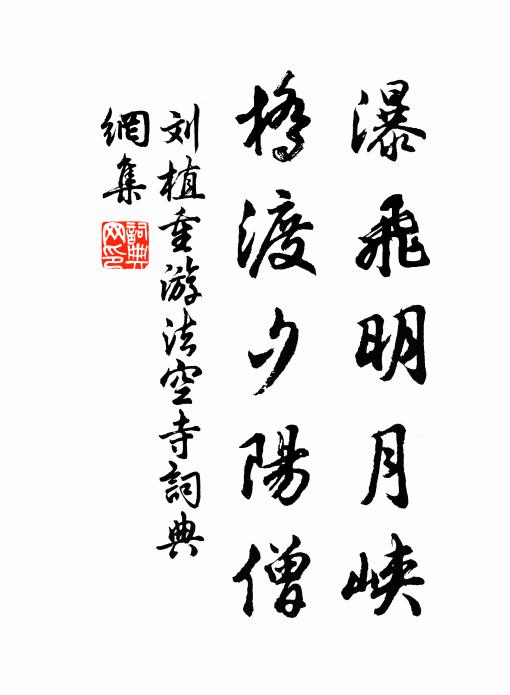 瀑飛明月峽
橋渡夕陽僧
刘植重游法空寺詞典
網集
詞典
网印